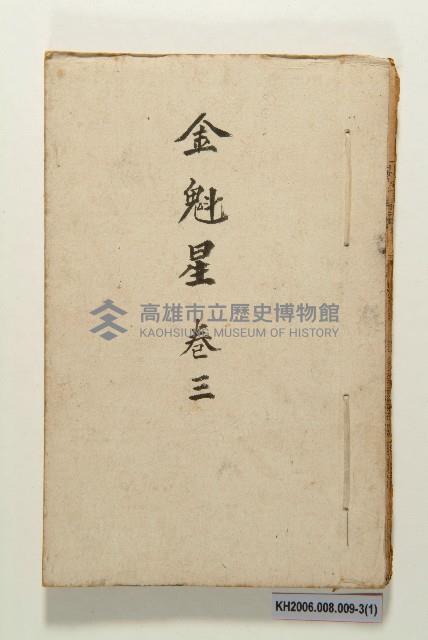 金魁星 卷三
高雄市立歷史博物館
KAOHSIUNG MUSEUM OF HISTORY
KH2006.008.009-3(1)